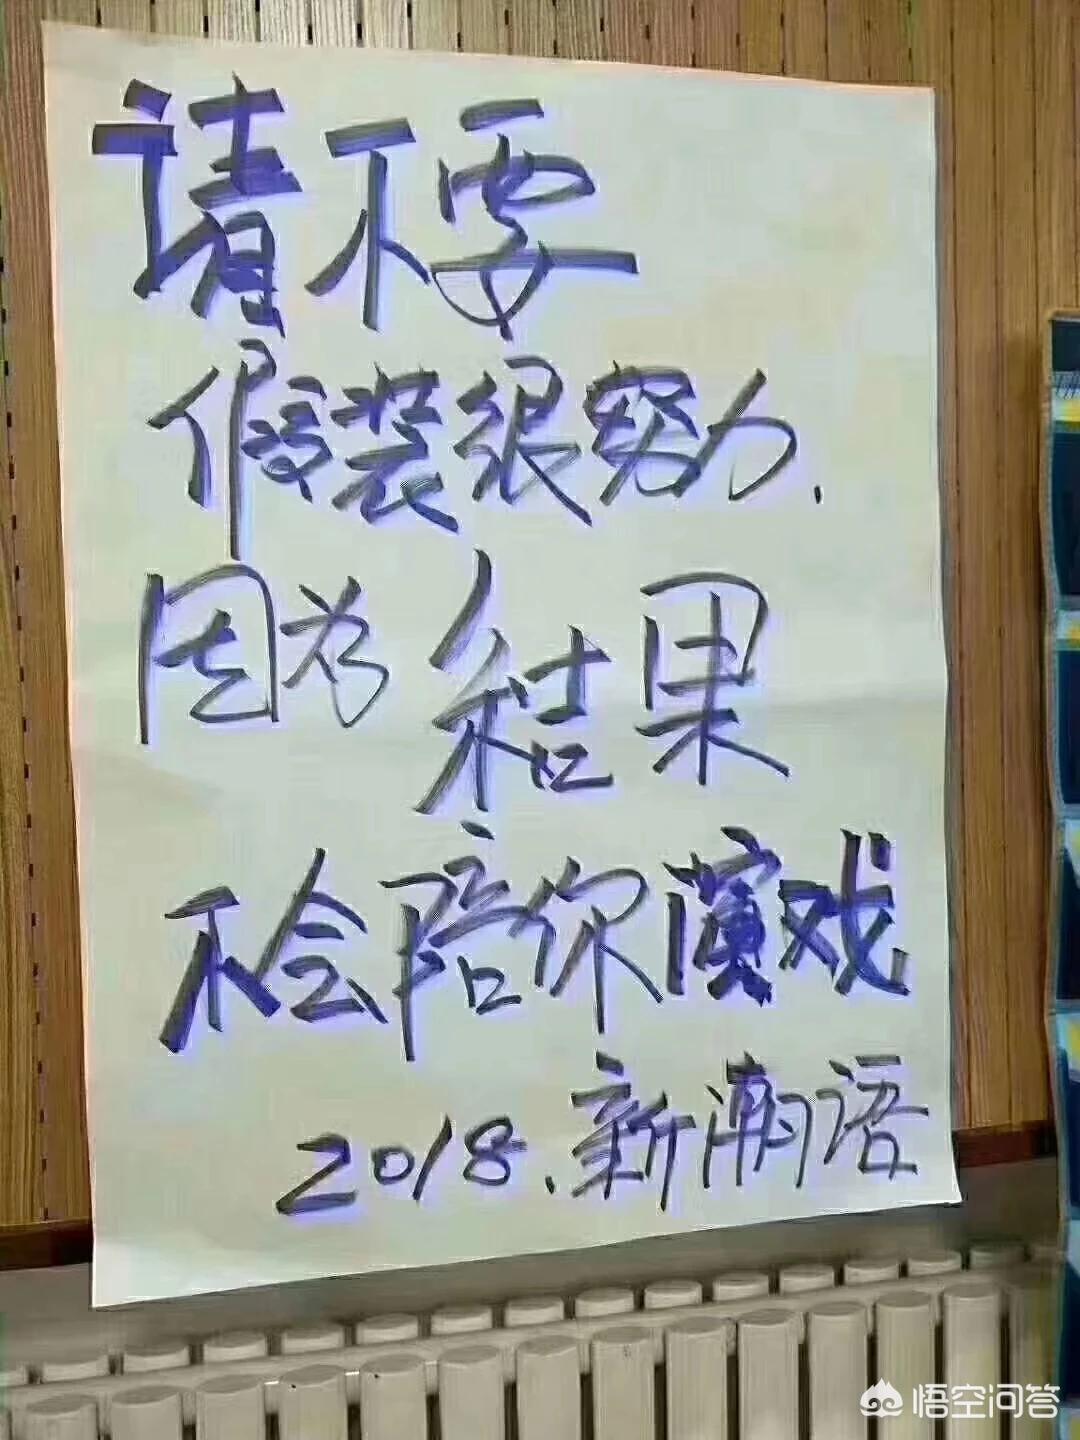 请不要
假装很努力.
因为结果
不会陪你演戏
2018.新潮语
悟空问答